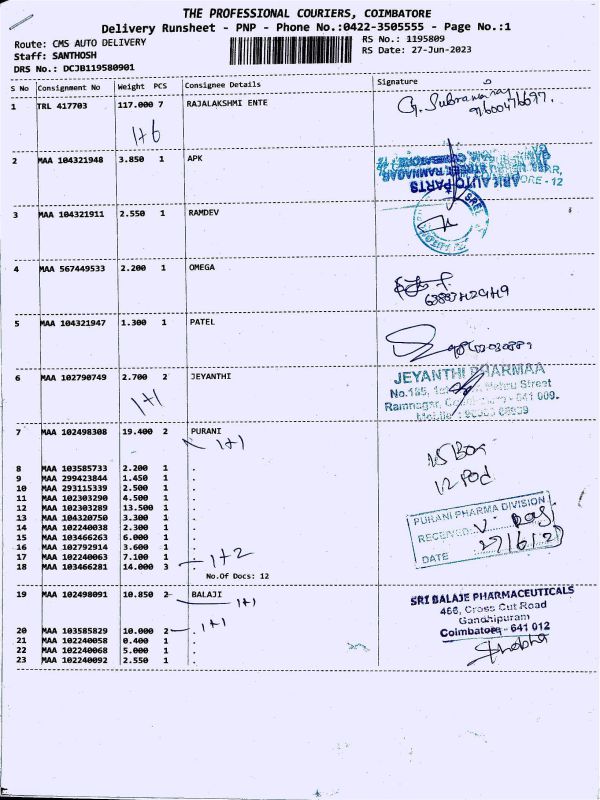 THE PROFESSIONAL COURIERS, COIMBATORE
Delivery Runsheet - PNP - Phone No.:0422-3505555 - Page No.:1
Route: CMS AUTO DELIVERY
RS No.: 1195809
Staff: SANTHOSH
RS Date: 27-Jun-2023
DRS No.: DCJB119580901
S No Consignment No Weight PCS Consignee Details Signature
1 TRL 417703 117.000 7 RAJALAKSHMI ENTE
1+6
2 MAA 104321948 3.850 1 APK
AUTO PARTS
3 MAA 104321911 2.550 1 RAMDEV
4 MAA 567449533 2.200 1 OMEGA
5 MAA 104321947 1.300 1 PATEL
6 MAA 102790749 2.700 2 JEYANTHI
JEYANTHI PHARMAA
Nehru Street
Ramnagar, 641 009.
1+1
7 MAA 102498308 19.400 2 PURANI
1+1
15 Box
12 Pod
8 MAA 103585733 2.200 1 .
9 MAA 299423844 1.450 1 .
10 MAA 293115339 2.500 1 .
11 MAA 102303290 4.500 1 .
12 MAA 102303289 13.500 1 .
13 MAA 104320750 3.300 1 .
14 MAA 102240038 2.300 1 .
15 MAA 103466263 6.000 1 .
16 MAA 102792914 3.600 1 .
17 MAA 102240063 7.100 1 .
18 MAA 103466281 14.000 3 .
1+2
No.Of Docs: 12
PURANI PHARMA DIVISION
RECEIVED
DATE 27/6/23
19 MAA 102498091 10.850 2 BALAJI
1+1
SRI BALAJE PHARMACEUTICALS
466, Cross Cut Road
Gandhipuram
Coimbatore - 641 012
20 MAA 103585829 10.000 2 .
1+1
21 MAA 102240058 0.400 1 .
22 MAA 102240068 5.000 1 .
23 MAA 102240092 2.550 1 .
Shobha